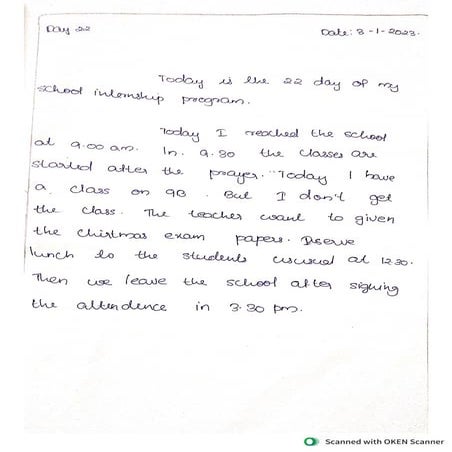 Day 22
Date: 3-1-2023.
Today is the 22 day of my
school internship program.
Today I reached the school
at 9.00 am. In 9.30 the classes are
started after the prayer. Today I have
a class on 9B. But I don't get
the class. The teacher want to given
the Chirtmas exam papers. I serve
lunch to the students ususal at 12.30.
Then we leave the school after signing
the attendence in 3.30 pm.
Scanned with OKEN Scanner